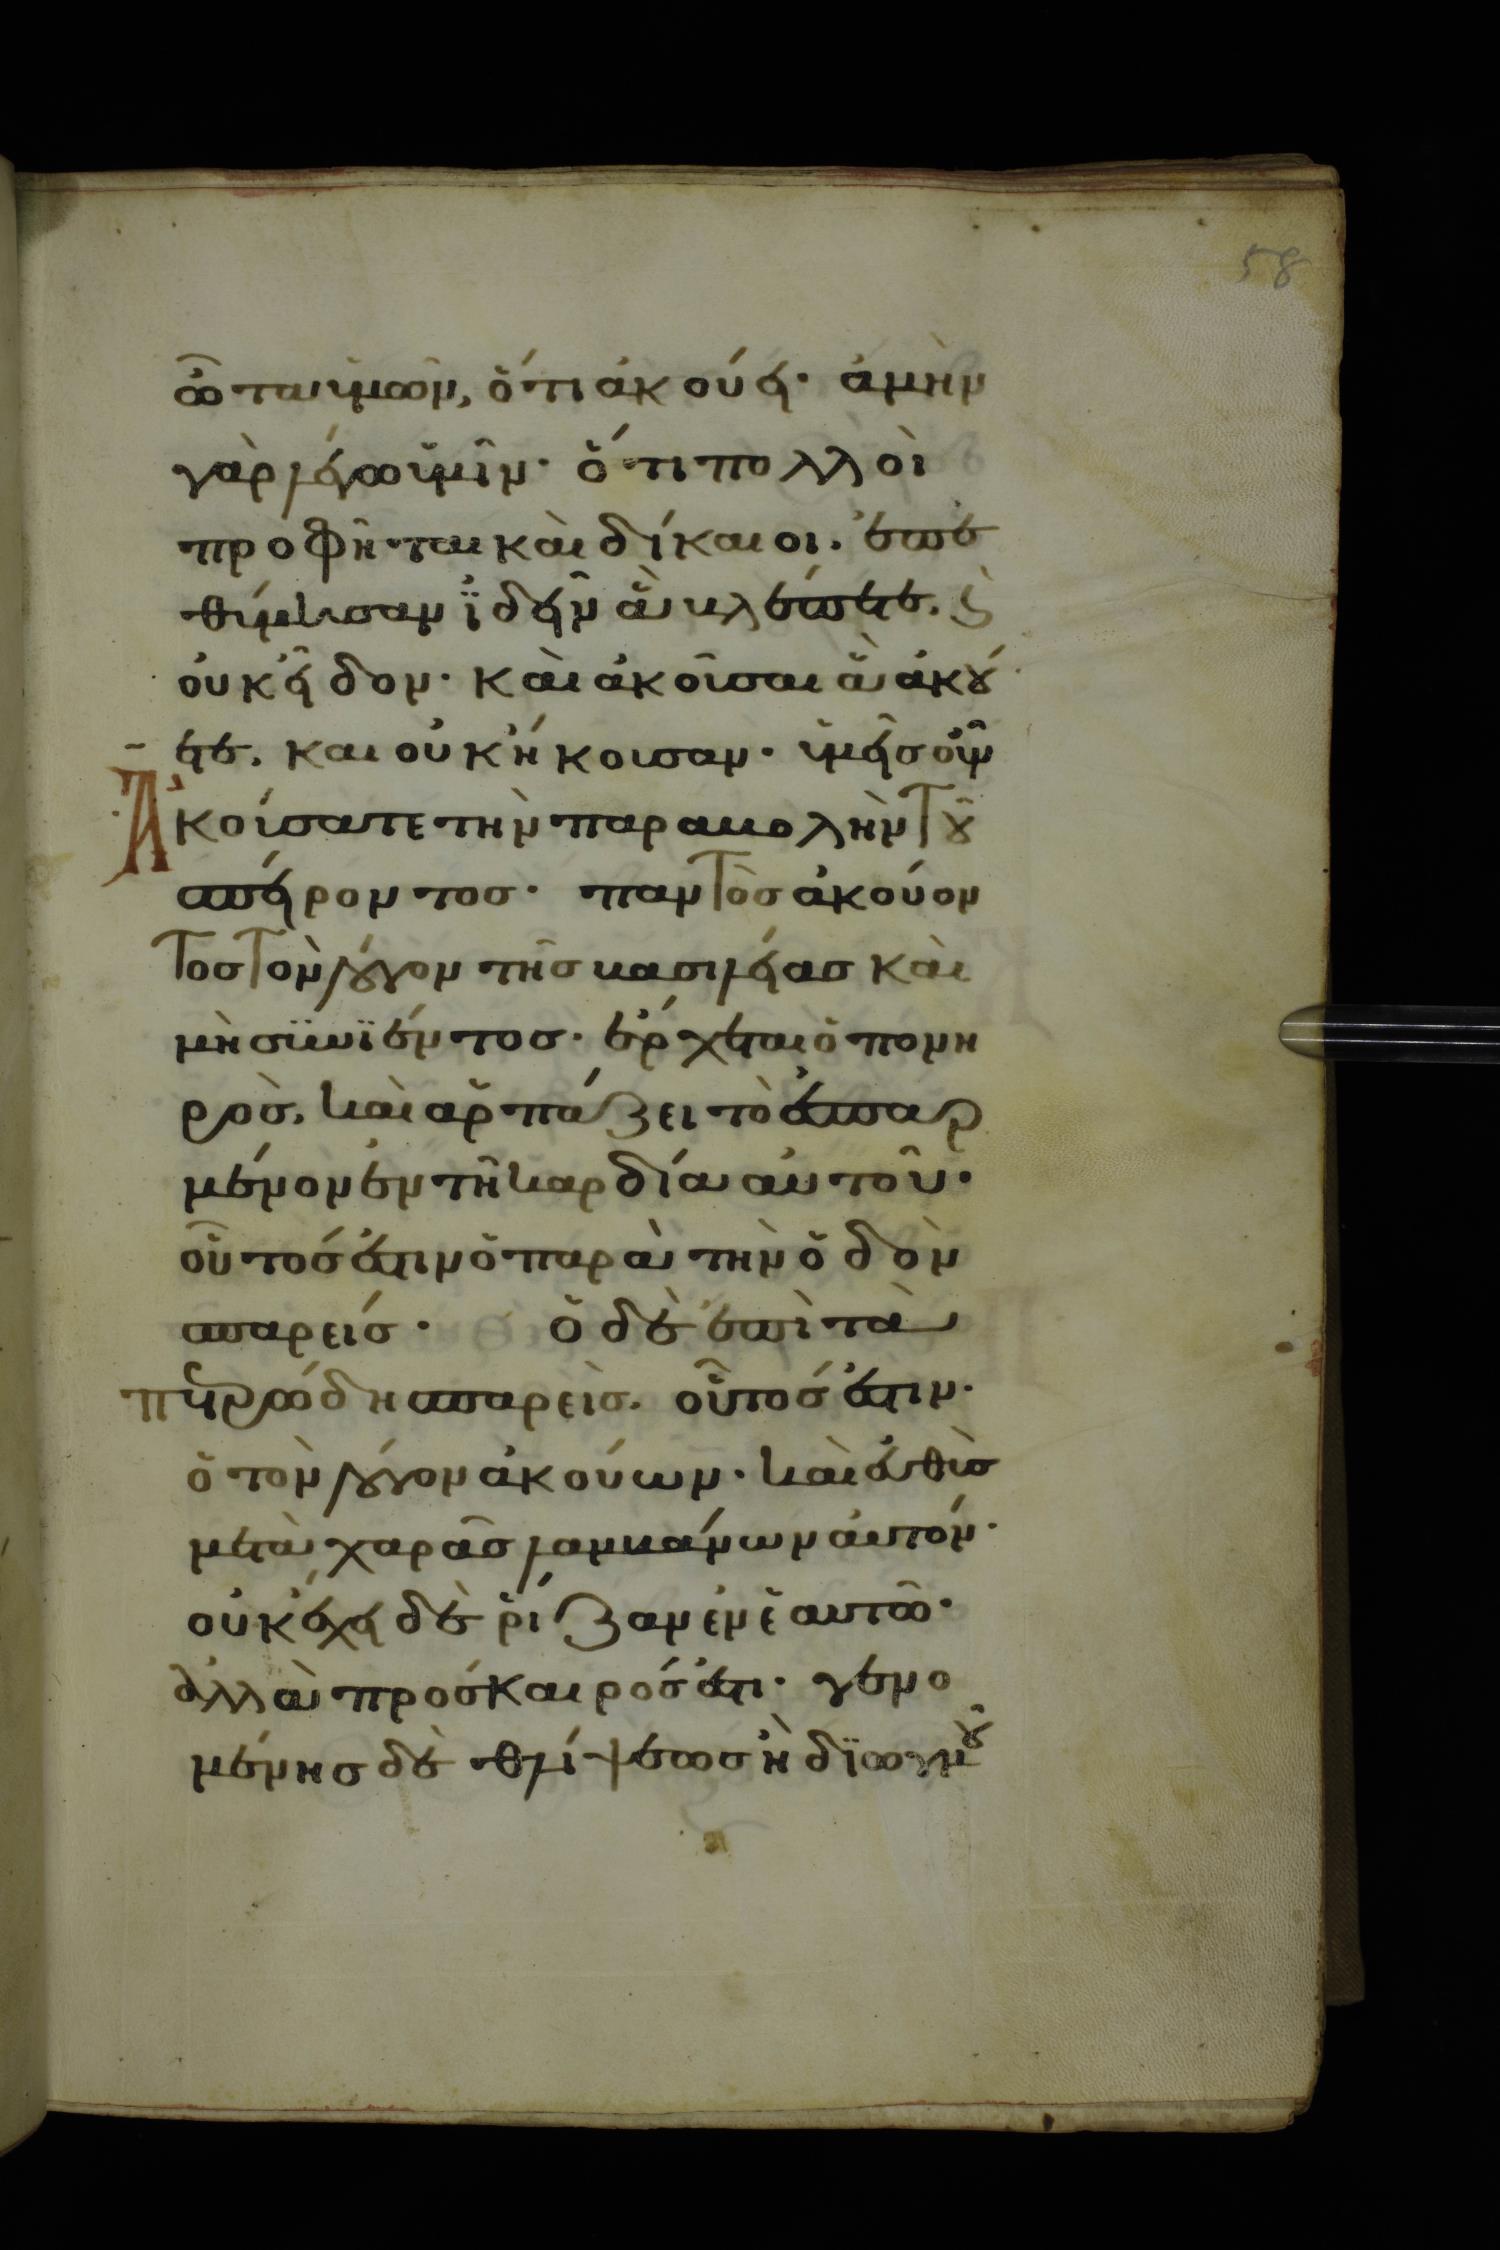 58
ὦτα ὑμῶν, ὅτι ἀκούει· ἀμὴν
γὰρ λέγω ὑμῖν· ὅτι πολλοὶ
προφῆται καὶ δίκαιοι. ἐπε
θύμησαν ἰδεῖν ἃ βλέπετε. ϛ̀
οὐκ εἶδον· καὶ ἀκοῦσαι ἃ ἀκού
ετε. και οὐκ ἤκουσαν· ὑμεῖς οὖν
Ἀκούσατε τὴν παραβολὴν τοῦ
σπείροντος· παντὸς ἀκούον
τος τὸν λόγον τῆς βασιλείας καὶ
μὴ συνϊέντος· ἔρχεται ὁ πονη
ρὸς, καὶ ἁρπάζει τὸ ἐσπαρ
μένον ἐν τῆ καρδία αὐτοῦ·
οὗτός ἐστιν ὁ παρὰ τὴν ὁδὸν
σπαρείς· ὁ δὲ ἐπὶ τὰ
πετρώδη σπαρεὶς. οὗτός ἐστιν·
ὁ τὸν λόγον ἀκούων· καὶ εὐθὺς
μετὰ χαρᾶς λαμβάνων αὐτόν·
οὐκ ἔχει δὲ ῥίζαν ἐν ἑαυτῶ·
ἀλλὰ πρόσκαιρός ἐστι· γενο
μένης δὲ θλίψεως ἢ διωγμοῦ